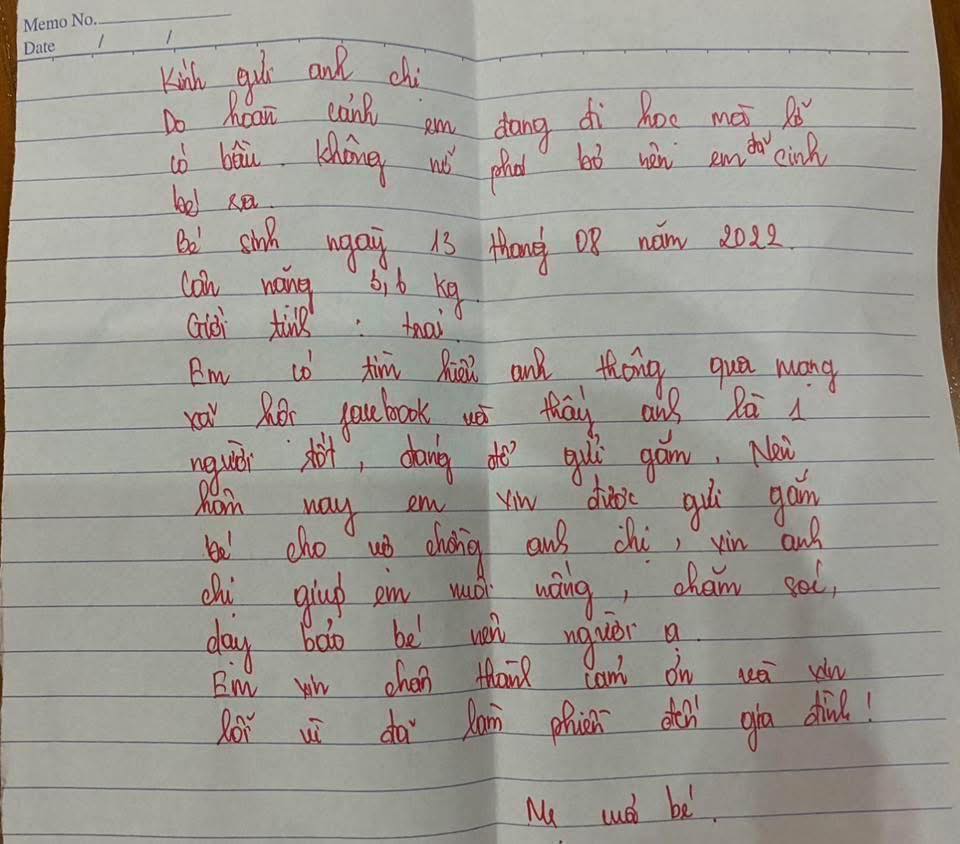 Memo No.
Date / /
Kính gửi anh chị
Do hoàn cảnh em đang đi học mà lỡ
có bầu. Không nỡ phá bỏ nên em đã sinh
bé ra.
Bé sinh ngày 13 tháng 08 năm 2022.
Cân nặng kg
Giới tính : trai
Em có tìm hiểu anh thông qua mạng
xã hội facebook và thấy anh là 1
người tốt, đáng để gửi gắm. Nên
hôm nay em xin được gửi gắm
bé cho vợ chồng anh chị, xin anh
chị giúp em nuôi nấng, chăm sóc,
dạy bảo bé nên người ạ.
Em xin chân thành cảm ơn và xin
lỗi vì đã làm phiền đến gia đình!
Mẹ của bé.